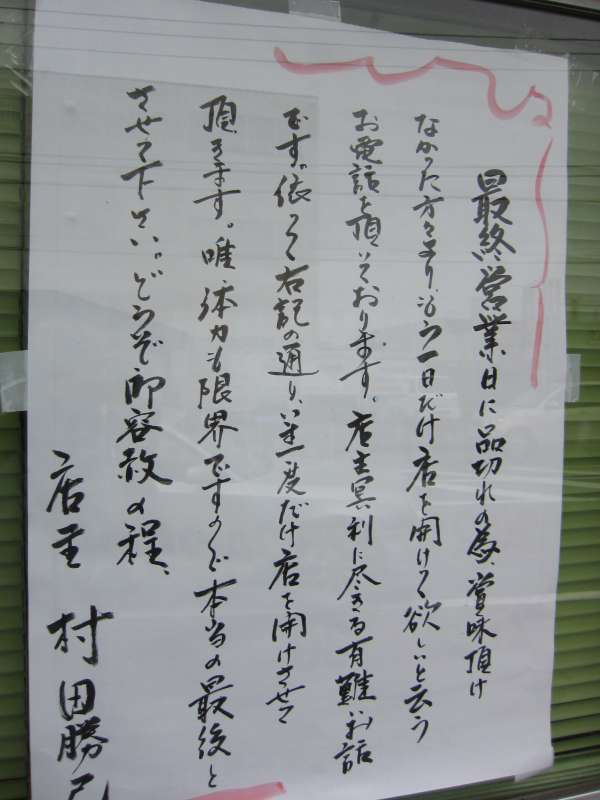 最終営業日に品切れの為、賞味頂け
なかった方々より、もう一日だけ店を開けて欲しいと云う
お電話を頂いております。店主冥利に尽きる有難いお話
です。依って右記の通り、いま一度だけ店を開けさせて
頂きます。唯体力も限界ですので本当の最後と
させて下さい。どうぞ御容赦の程、
店主 村田勝己